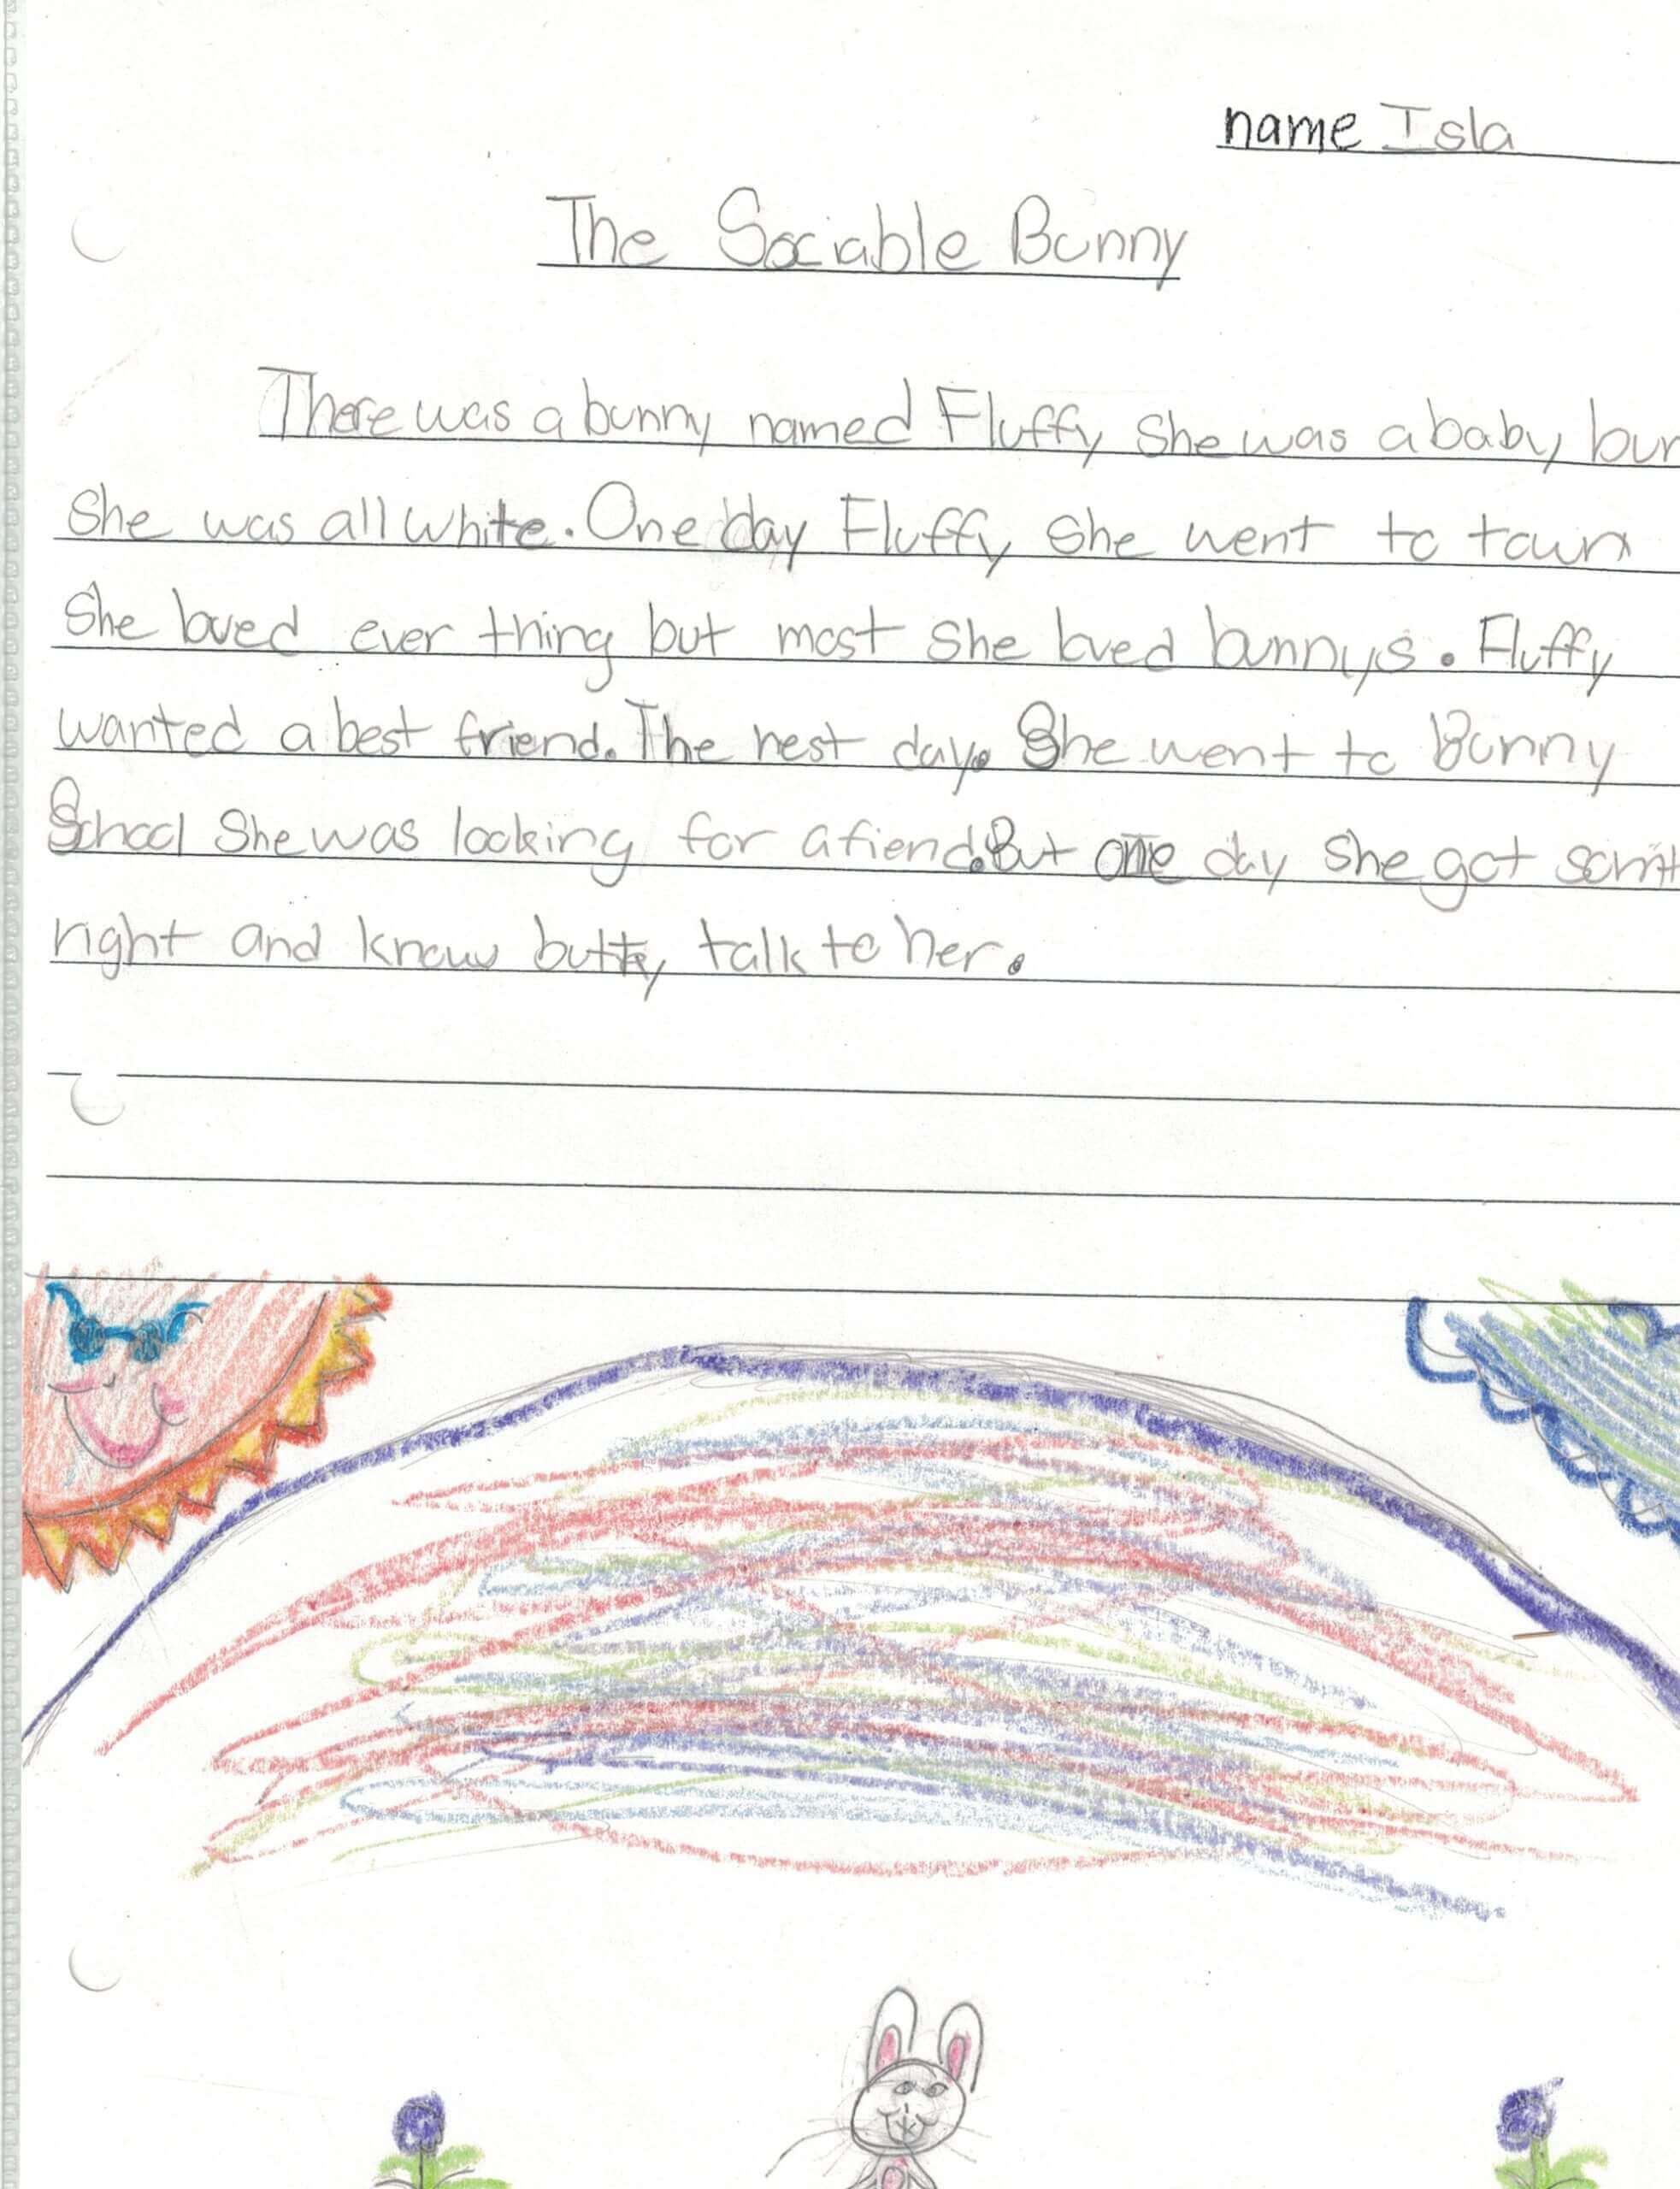 name Isla
The Sociable Bunny
There was a bunny named Fluffy she was a baby bun
she was all white. One day Fluffy she went to town
She loved ever thing but most she loved bunnys. Fluffy
wanted a best friend. The nest day. She went to Bunny
School She was looking for a fiend. But one day she got
right and know butty talk to her.